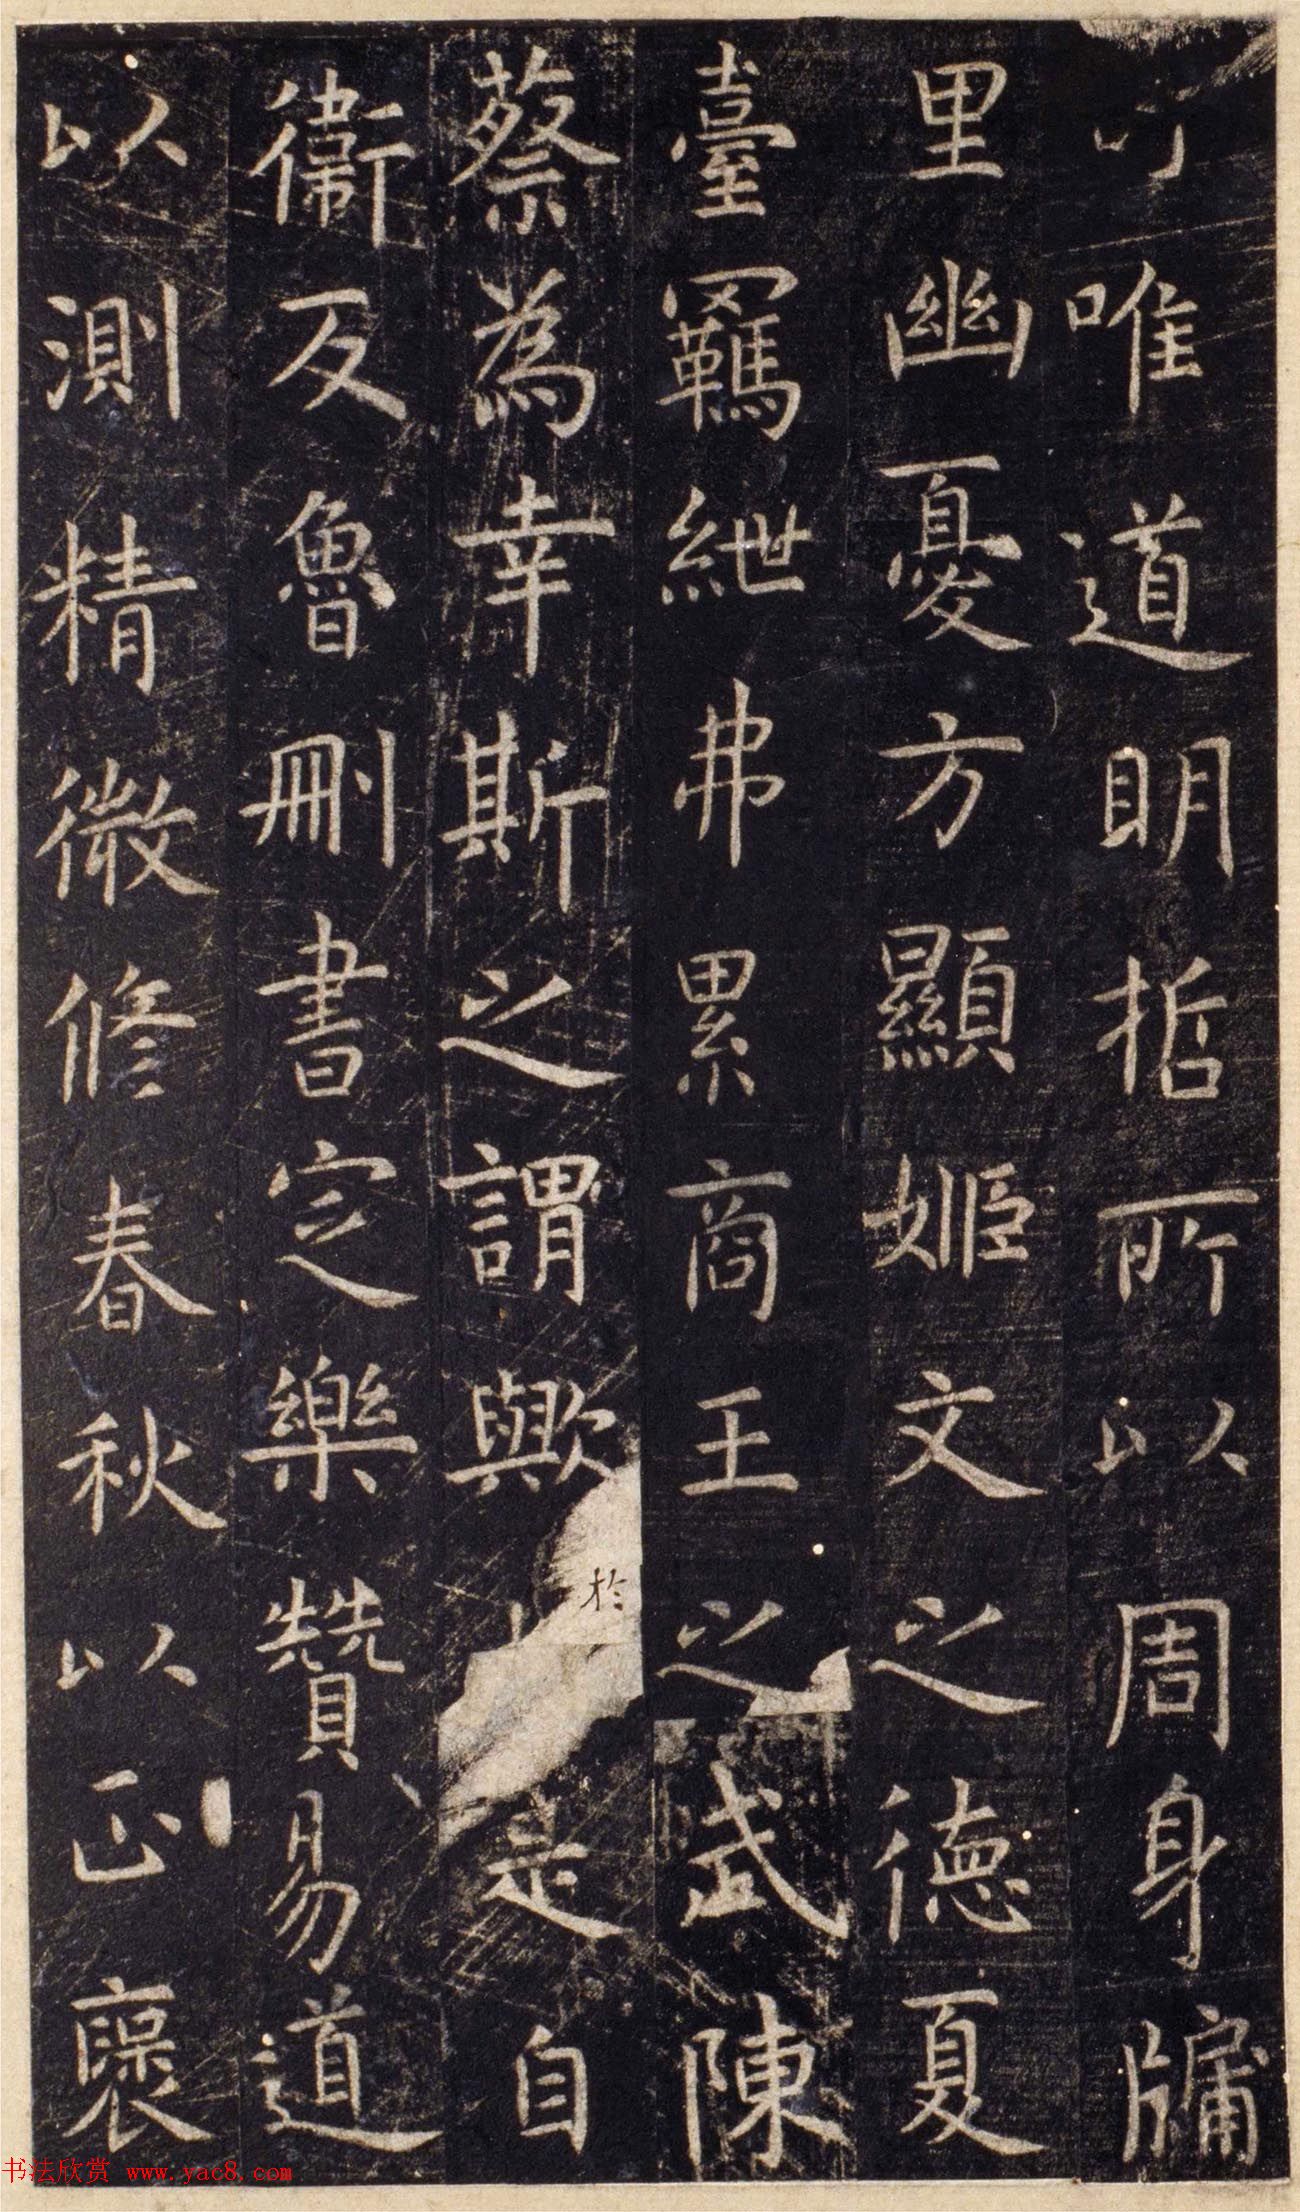 唯道明哲所以周身牖
里幽憂方顯姬文之德夏
臺羈紲弗累商王之武陳
蔡為幸斯之謂歟於是自
衛反魯刪書定樂贊易道
以測精微修春秋以正褒
书法欣赏 www.yac8.com